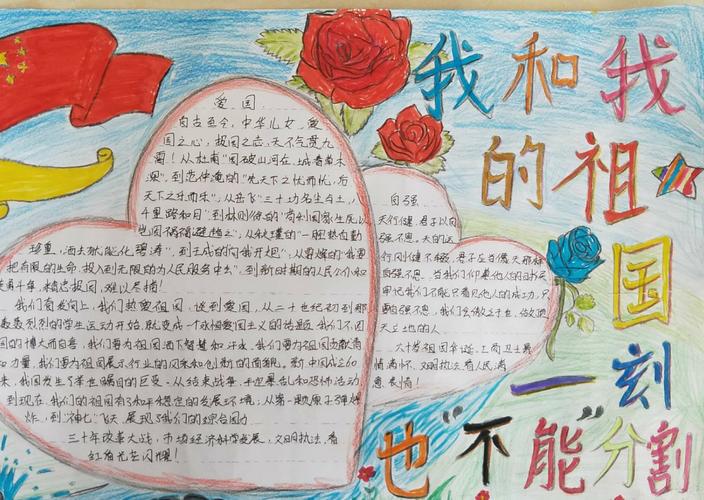 我和我
的祖
国
一刻
也"不能"分割
爱国
自古至今,中华儿女,爱
国之心,报国之志,天不气贯九
霄!从杜甫"国破山河在,城春草木
深",到范仲淹的"先天下之忧而忧,后
天下之乐而乐",从岳飞"三十功名尘与土,八
千里路和月"到林则徐的"苟利国家生死以
岂因祸福避趋之",从秋瑾的"一腔热血勤
珍重,洒去犹能化碧涛",到王成的向我开炮",从雷锋的"我要
把有限的生命,投入到无限的为人民服务中去",到新时期的人民公仆和
千年,精忠报国,难以尽捕!
我们奋发向上,我们热爱祖国,谈到爱国,从二十世纪初到那
轰轰烈烈的学生运动开始,就变成一个永恒爱国主义的话题.我们不因
国的博大而自喜,我们要为祖国洒下智慧和汗水,我们要为祖国贡献青
和力量,我们要为祖国展示行业的风采和创新的面貌。新中国成立60
来,我国发生了举世瞩目的巨变:从结束战争、
到现在我们的祖国有了和平稳定的发展环境;从第一颗原子弹爆
炸,到"神七"飞天,展现了我们的综合国力
三十年改革大战,市场经济科学发展,文明执法,看
红盾光芒闪耀!
自强
天行健,君子以自
强不息。天的运
行刚健不够,君子应当像天那样
自强不息。当我们仰慕他人的
牢记我们不能只看见他人的成功,只
自强不息,我们会傲立于世,做
天立地的人。
六十岁祖国华诞,工商卫士
情满怀.文明执法看人民满
意表情!